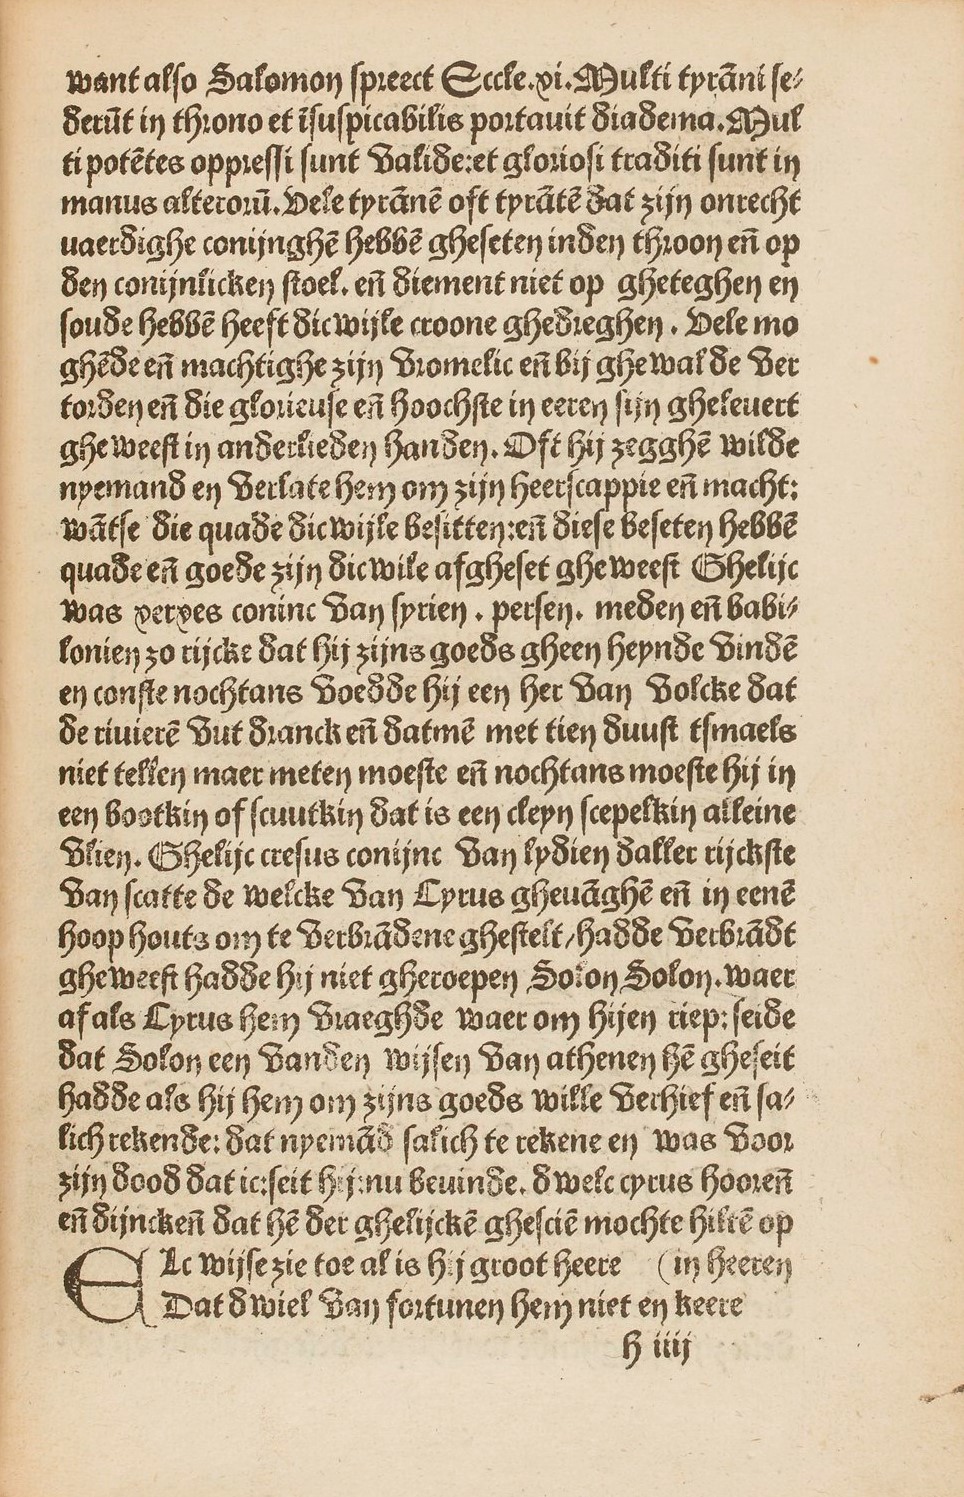 want also Salomon spreect Eccle.xi. Multi tyrāni se-
derūt in throno et īsuspicabilis portauit diadema. Mul
ti potētes oppressi sunt valide: et gloriosi traditi sunt in
manus alterorū. Vele tyrānē oft tyrātē dat zijn onrecht
uaerdighe conijnghē hebbē gheseten inden throon eñ op
den conijnlicken stoel. eñ diement niet op gheteghen en
soude hebbē heeft dicwijle croone ghedreghen. Vele mo
ghēde eñ machtighe zijn vromelic eñ bij ghewalde ver
torden eñ die glorieuse eñ hoochste in eeren sijn gheleuert
gheweest in anderlieden handen. Oft hij zegghē wilde
nyemand en verlate hem om zijn heerscappie eñ macht:
wātse die quade dicwijle besitten: eñ diese beseten hebbē
quade eñ goede zijn dicwile afgheset gheweest Ghelijc
was xerxes coninc van syrien. persen. meden eñ babi-
lonien zo rijcke dat hij zijns goeds gheen heynde vindē
en conste nochtans voedde hij een her van volcke dat
de riuierē vut dranck eñ datmē met tien duust tsmaels
niet tellen maer meten moeste eñ nochtans moeste hij in
een bootkin of scuutkin dat is een cleyn scepelkin alleine
vlien. Ghelijc cresus conijnc van lydien daller rijckste
van scatte de welcke van Cyrus gheuāghē eñ in eenē
hoop houts om te verbrādene ghestelt/ hadde verbrādt
gheweest hadde hij niet gheroepen Solon Solon. waer
af als Cyrus hem vraeghde waer om hijen riep: seide
dat Solon een vanden wijsen van athenen hē gheseit
hadde als hij hem om zijns goeds wille verhief eñ sa-
lich rekende: dat nyemād salich te rekene en was voor
zijn dood dat ic: seit hij: nu beuinde. dwelc cyrus hooreñ
eñ dijnckeñ dat hē der ghelijckē ghesciē mochte hiltē op
Elc wijse zie toe al is hij groot heere (in heeren
Dat dwiel van fortunen hem niet en keere
h iiij